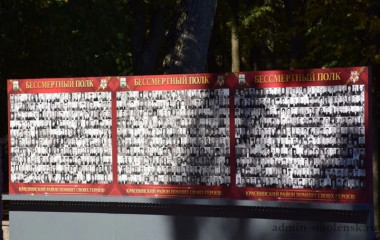 БЕССМЕРТНЫЙ ПОЛК
БЕССМЕРТНЫЙ ПОЛК
БЕССМЕРТНЫЙ ПОЛК
КРАСНИНСКИЙ РАЙОН ПОМНИТ СВОИХ ГЕРОЕВ
КРАСНИНСКИЙ РАЙОН ПОМНИТ СВОИХ ГЕРОЕВ
КРАСНИНСКИЙ РАЙОН ПОМНИТ СВОИХ ГЕРОЕВ
admin-smolensk.ru